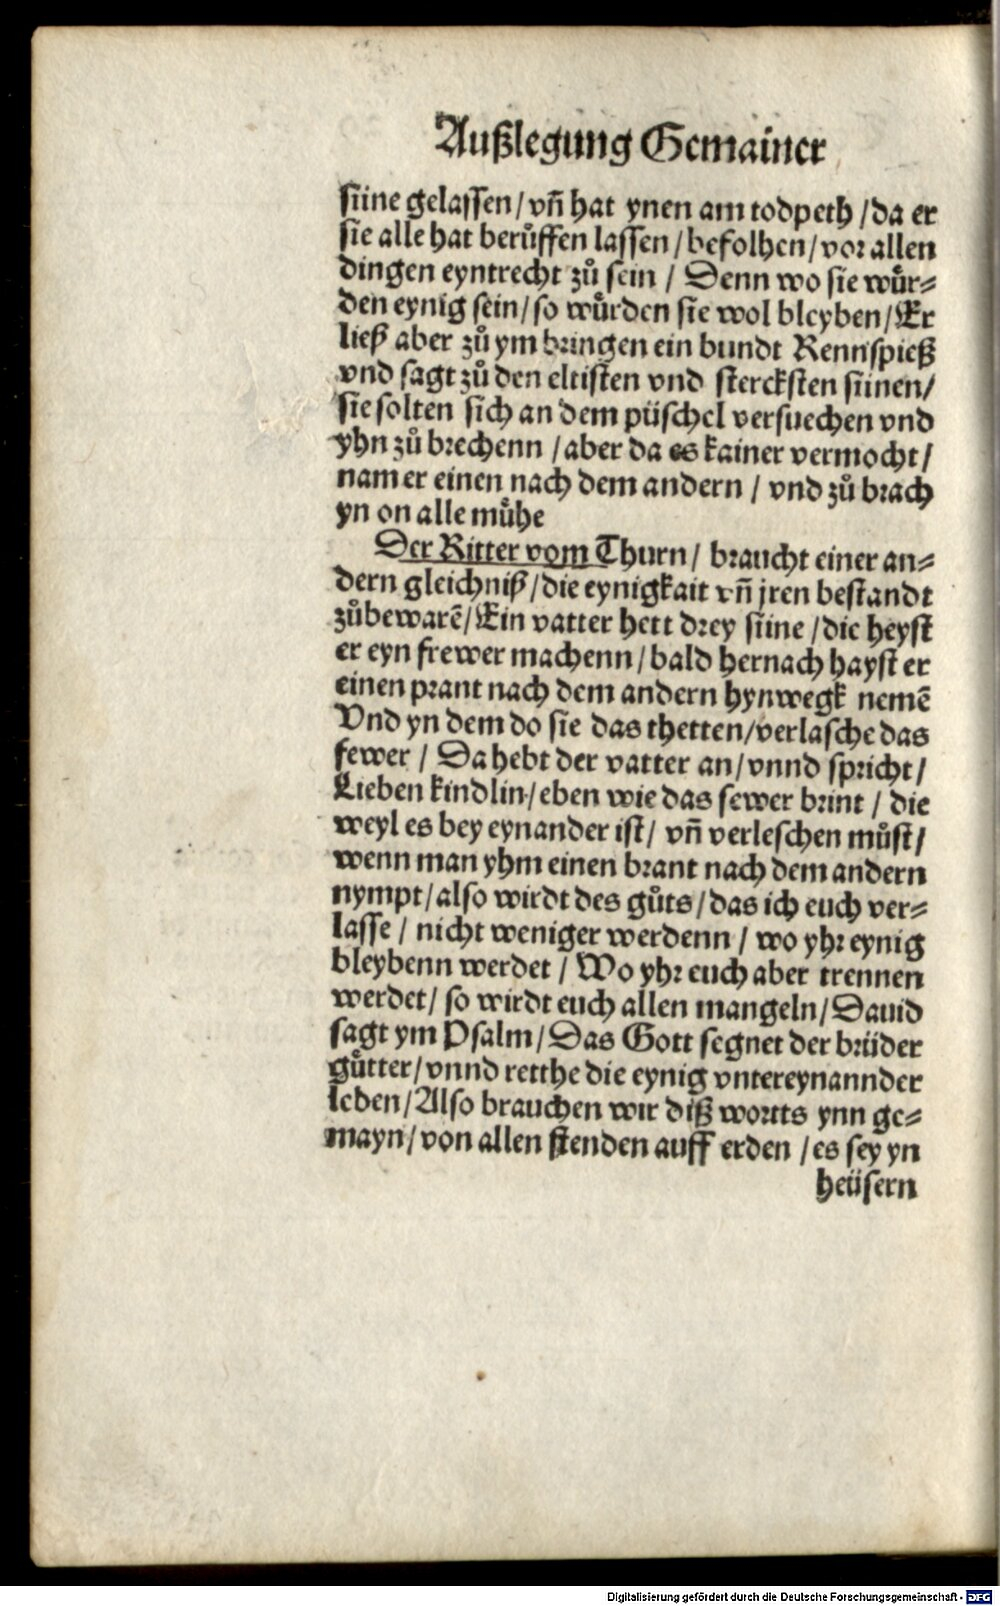 Außlegung Gemainer
süne gelassen / vn̄ hat ynen am todpeth / da er
sie alle hat berůffen lassen / befolhen / vor allen
dingen eyntrecht zů sein / Denn wo sie wůr⸗
den eynig sein / so wůrden sie wol bleyben / Er
ließ aber zů ym bringen ein bundt Rennspieß
vnd sagt zů den eltisten vnd stercksten sünen /
sie solten sich an dem püschel versuechen vnd
yhn zů brechenn / aber da es kainer vermocht /
nam er einen nach dem andern / vnd zů brach
yn on alle můhe
Der Ritter vom Thurn / braucht einer an⸗
dern gleichniß / die eynigkait vn̄ jren bestandt
zůbewarē / Ein vatter hett drey süne / die heyst
er eyn frewer machenn / bald hernach hayst er
einen prant nach dem andern hynwegk nemē
Vnd yn dem do sie das thetten / verlasche das
fewer / Da hebt der vatter an / vnnd spricht /
Lieben kindlin / eben wie das fewer brint / die
weyl es bey eynander ist / vn̄ verleschen můst /
wenn man yhm einen brant nach dem andern
nympt / also wirdt des gůts / das ich euch ver⸗
lasse / nicht weniger werdenn / wo yhr eynig
bleybenn werdet / Wo yhr euch aber trennen
werdet / so wirdt euch allen mangeln / Dauid
sagt ym Psalm / Das Gott segnet der brüder
gůtter / vnnd retthe die eynig vntereynannder
leben / Also brauchen wir diß wortts ynn ge⸗
mayn / von allen stenden auff erden / es sey yn
heüsern
Digitalisierung gefördert durch die Deutsche Forschungsgemeinschaft - DFG